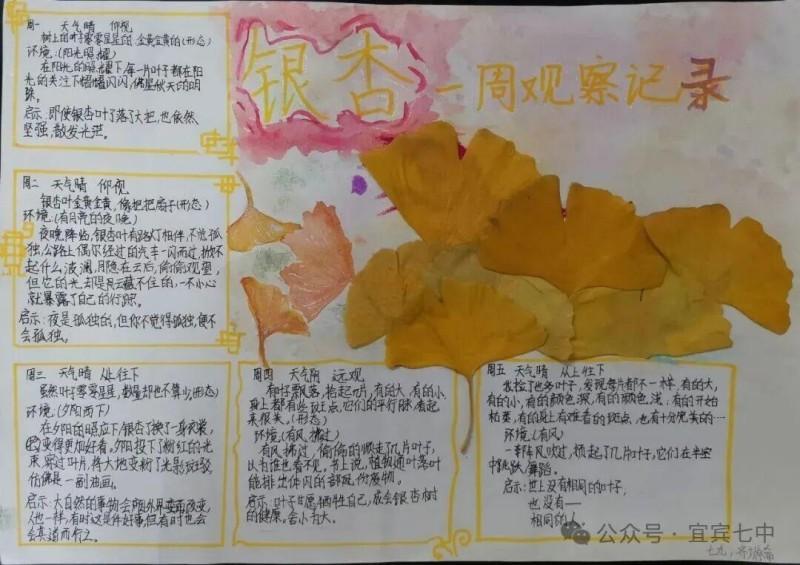 银杏一周观察记录
周一 天气晴 仰视
树上的叶子零零星星的,金黄金黄的(形态)
环境:(阳光照耀)
在阳光的照耀下,每一片叶子都在阳
光的关注下熠熠闪闪,偶是秋天的明
启示:即使银杏叶了落了大把,也依然
坚强,散发光茫。
周二 天气晴 仰视
银杏叶金黄金黄,像把把扇子(形态)
环境:(有月亮的夜晚)
夜晚降临,银杏叶有路灯相伴,不觉孤
独,公路上偶尔经过的汽车一闪而过,掀不
起什么波澜,月隐在云后,偷偷观望,
但它的光却是藏不住的,一不小心
就暴露了自己的行踪。
启示:夜是孤独的,但你不觉得孤独,便不
会孤独。
周三 天气晴 从上往下
虽然叶子零零星星,数量却也不算少(形态)
环境(夕阳西下)
在夕阳的照应下,银杏了换了一身衣裳,
变得更加好看,夕阳投下了粉红的光
束,穿过叶片,将大地变粉了光影斑驳,
仿佛是一副油画。
启示:大自然的事物会随外界变而改变,
人也一样,有时这是件好事,但有时也会
会其道而行之。
周四 天气阴 远观
都有飘落,拾起几片,有的大,有的小,
身上都有些斑点,它们的平行脉看起
来很美。(形态)
环境(有风拂过)
有风拂过,偷偷的顺走了几片叶子,
以为谁也看不见,书上说,植物通叶落叶
能排出体内的部分废物。
启示:叶子甘愿牺牲自己,成会银杏树
的健康,舍小为大。
周五 天气晴 从上往下
我捡了也多叶子,发现每片都不一样,有的大,
有的小,有的颜色深,有的颜色浅,有的开始
枯萎,有的身上有难看的斑点,也有十分完美的…
环境(有风)
一阵阵风吹过,掀起了几片叶子,它们在半空
中跳跃,舞蹈。
启示:世上没有相同的叶子,
也没有一
相同的
公众号·宜宾七中